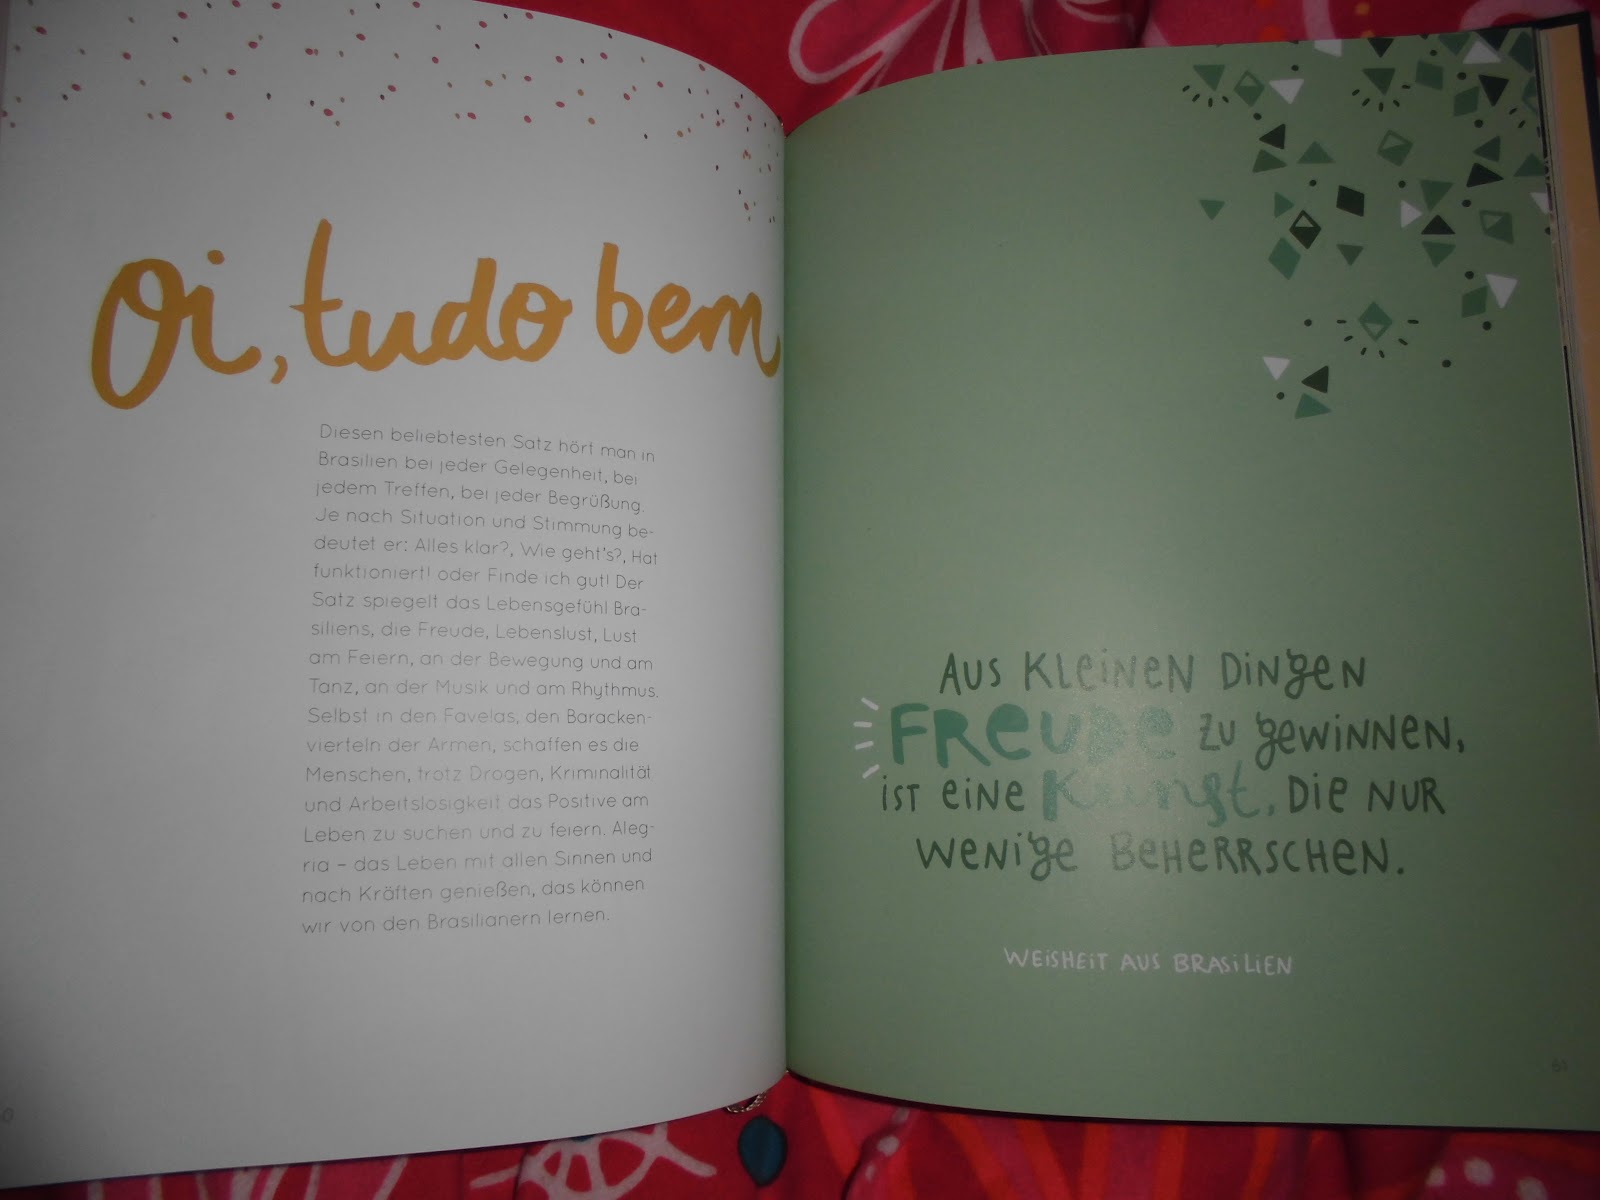 Oi, tudo bem
Diesen beliebtesten Satz hört man in
Brasilien bei jeder Gelegenheit, bei
jedem Treffen, bei jeder Begrüßung.
Je nach Situation und Stimmung be-
deutet er: Alles klar?, Wie geht's?, Hat
funktioniert! oder Finde ich gut! Der
Satz spiegelt das Lebensgefühl Bra-
siliens, die Freude, Lebenslust, Lust
am Feiern, an der Bewegung und am
Tanz, an der Musik und am Rhythmus.
Selbst in den Favelas, den Baracken-
vierteln der Armen, schaffen es die
Menschen, trotz Drogen, Kriminalität
und Arbeitslosigkeit das Positive am
Leben zu suchen und zu feiern. Aleg-
ria – das Leben mit allen Sinnen und
nach Kräften genießen, das können
wir von den Brasilianern lernen.
AUS KLEINEN DINGEN
FREUDE ZU GEWINNEN,
IST EINE Kunst, DIE NUR
WENIGE BEHERRSCHEN.
WEISHEIT AUS BRASILIEN